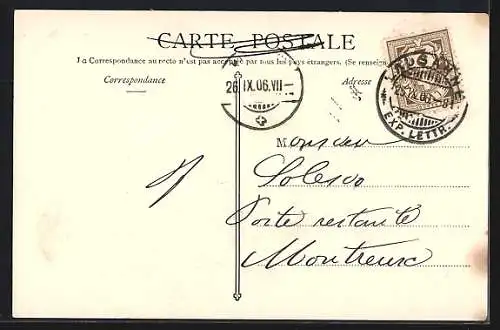 CARTE POSTALE
La Correspondance au recto n'est pas acceptée par tous les pays étrangers. (Se renseign
Correspondance
Adresse
LAUSANNE
EXP. LETTR.
26.IX.06.VII-
Monsieur
Poste restante
Montreux